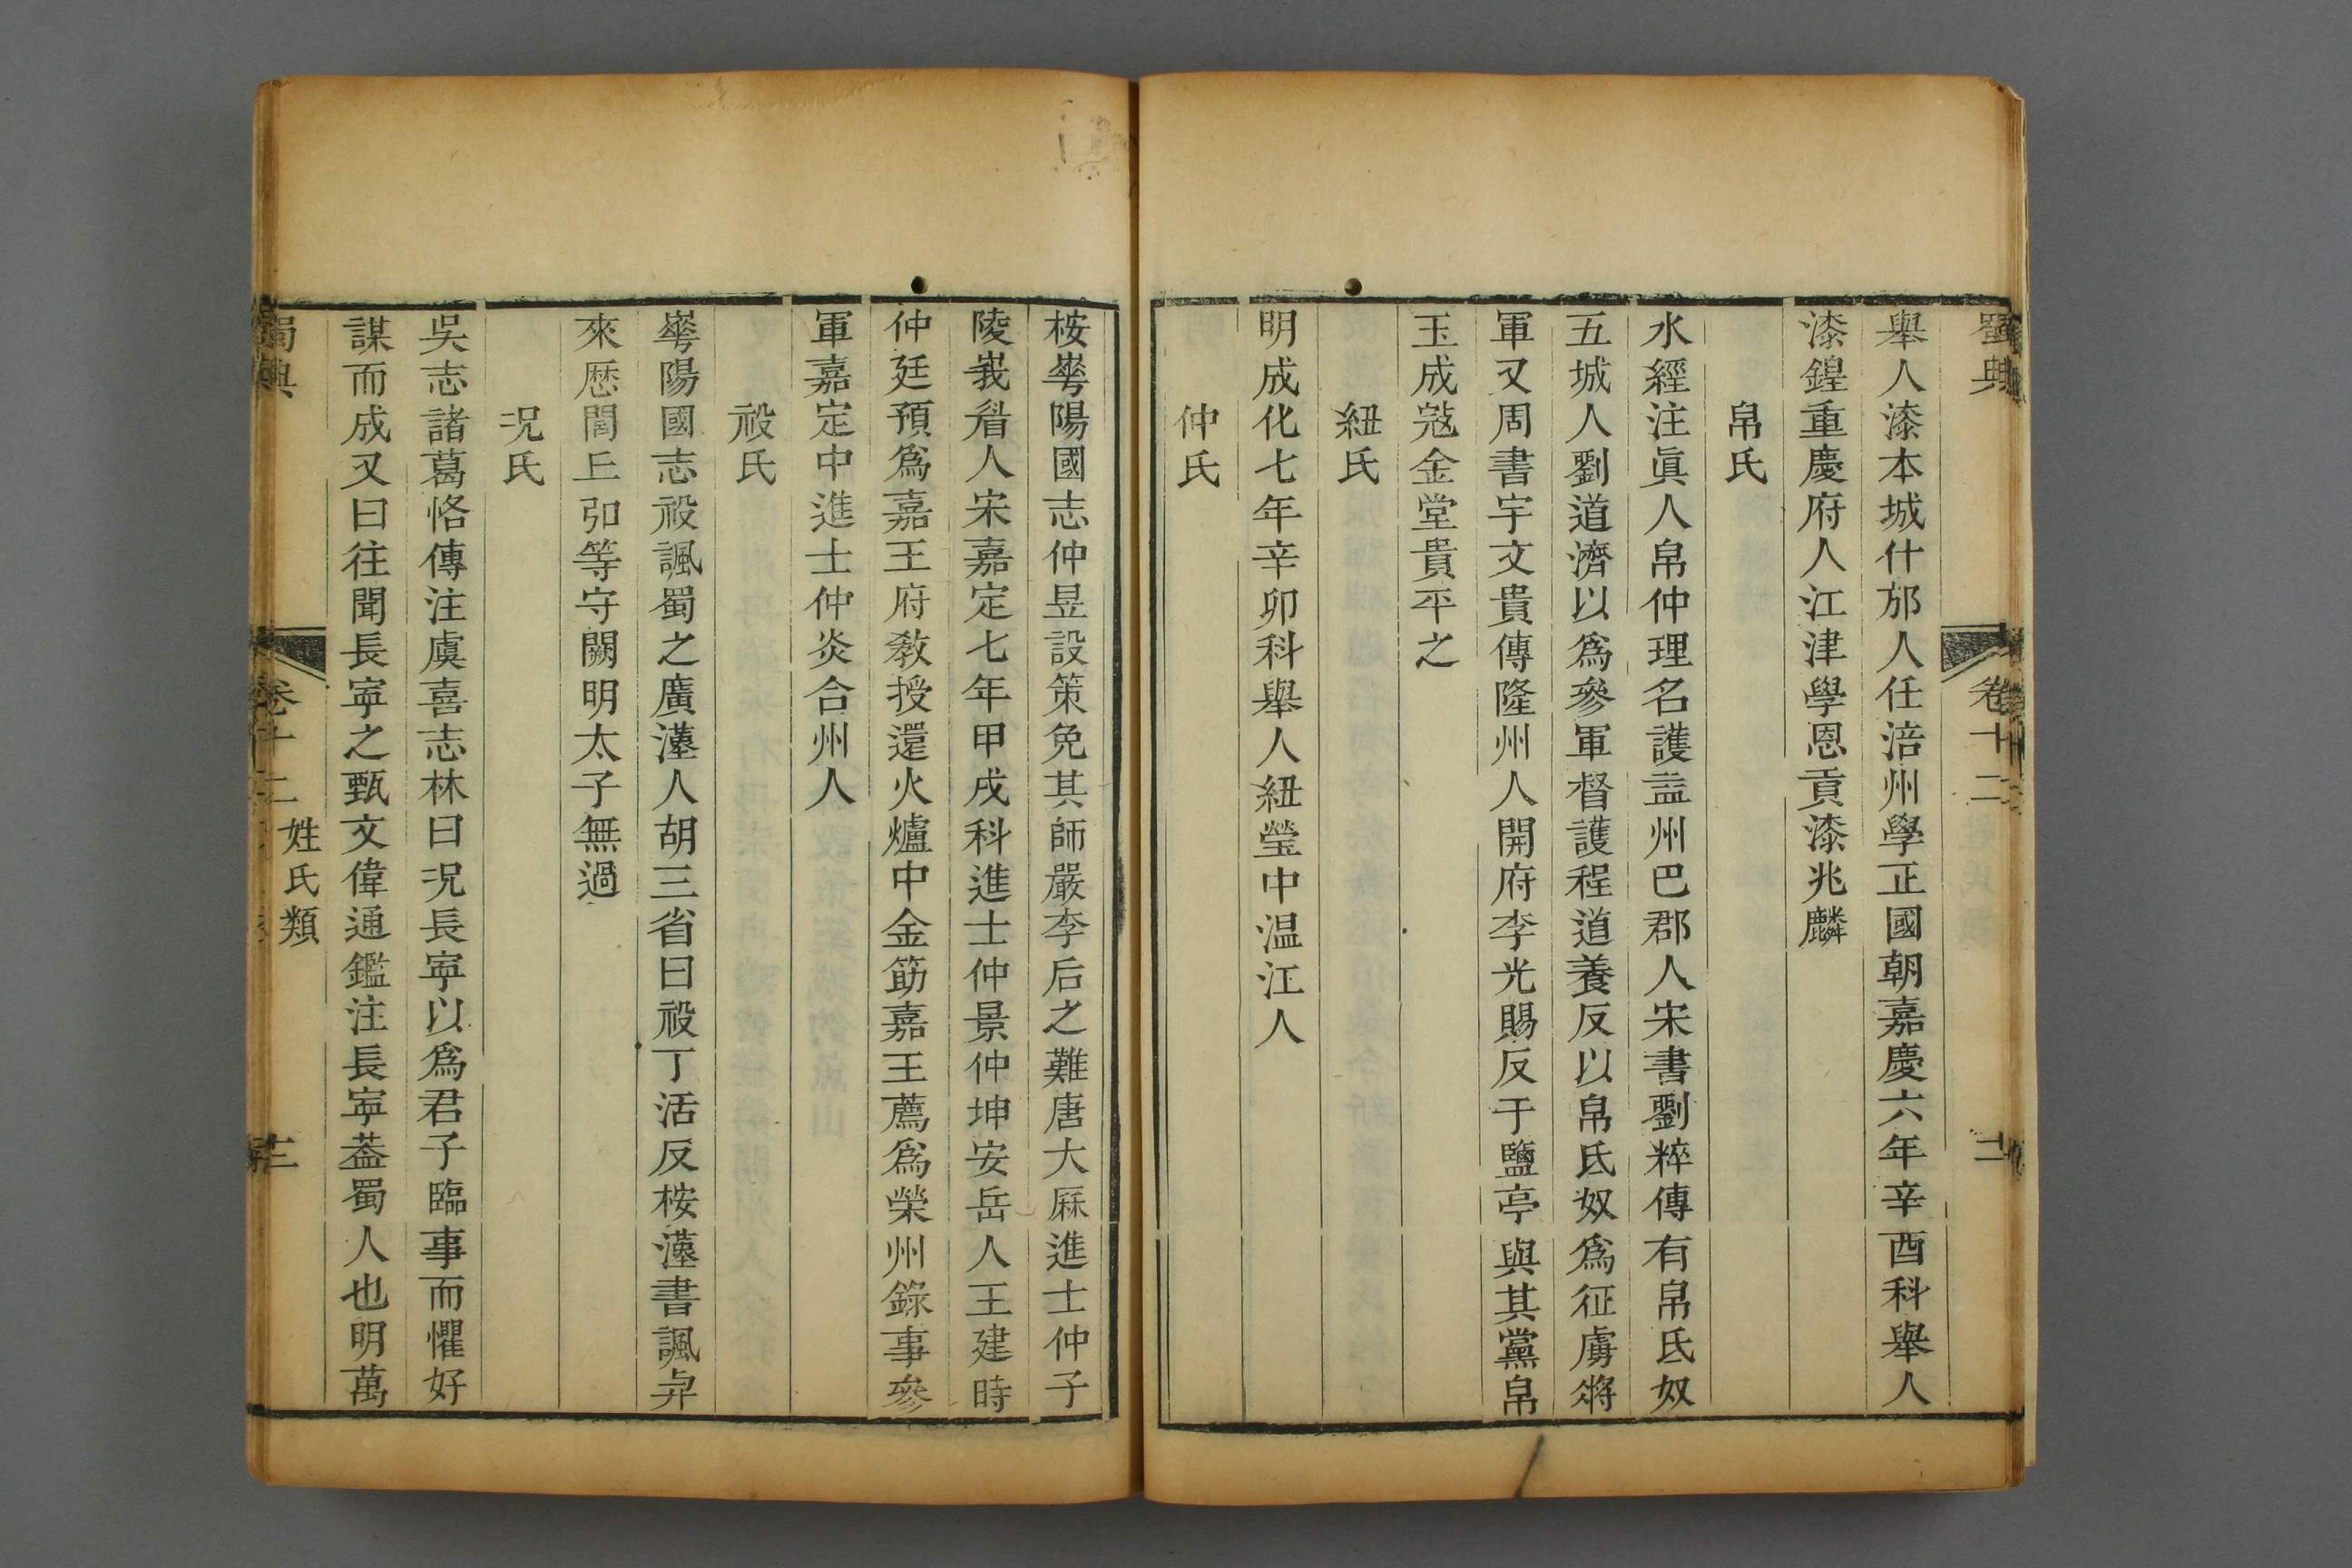 蜀典
卷十二
二
舉人漆本城什邡人任涪州學正國朝嘉慶六年辛酉科舉人
漆鍠重慶府人江津學恩貢漆兆麟
帛氏
水經注眞人帛仲理名護益州巴郡人宋書劉粹傳有帛氐奴
五城人劉道濟以爲參軍督護程道養反以帛氐奴爲征虜將
軍又周書宇文貴傳隆州人開府李光賜反于鹽亭與其黨帛
玉成寇金堂貴平之
紐氏
明成化七年辛卯科舉人紐瑩中温江人
仲氏
桉崋陽國志仲昱設策免其師嚴李后之難唐大厤進士仲子
陵峩眉人宋嘉定七年甲戌科進士仲景仲坤安岳人王建時
仲廷預爲嘉王府敎授還火爐中金筯嘉王薦爲榮州錄事參
軍嘉定中進士仲炎合州人
祋氏
崋陽國志祋諷蜀之廣漢人胡三省曰祋丁活反桉漢書諷弁
來厯閭丘弘等守闕明太子無過
况氏
吳志諸葛恪傳注虞喜志林曰况長寧以爲君子臨事而懼好
謀而成又曰往聞長寧之甄文偉通鑑注長寧葢蜀人也明萬
蜀典
卷十二
姓氏類
三